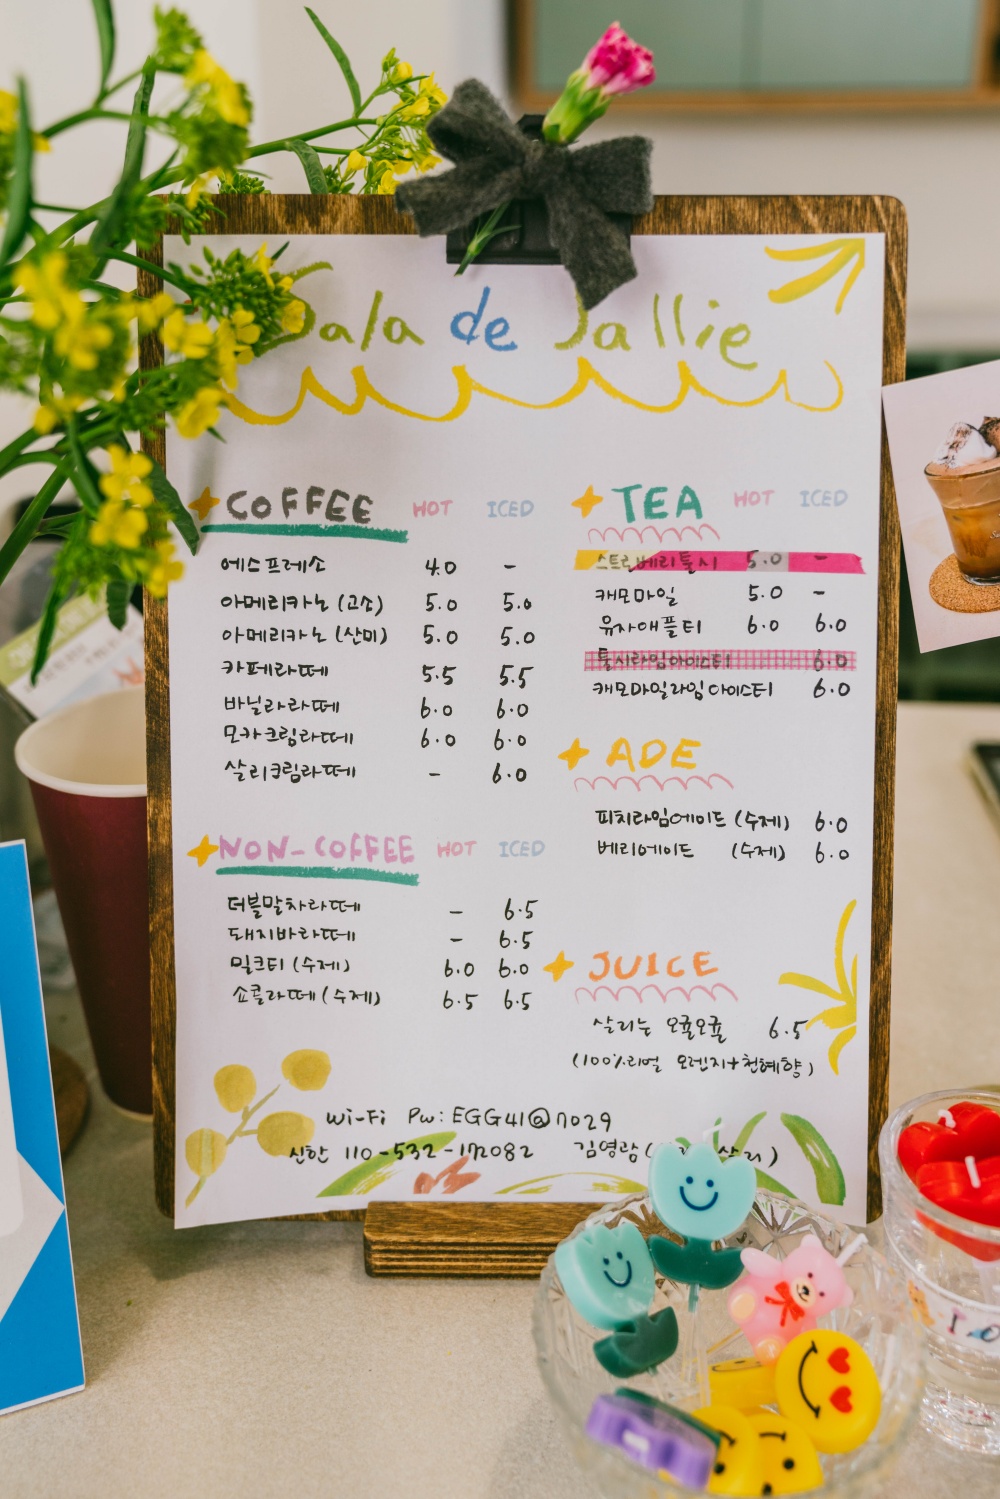 Sala de Sallie
COFFEE HOT ICED
에스프레소 4.0 -
아메리카노 (고소) 5.0 5.0
아메리카노 (산미) 5.0 5.0
카페라떼 5.5 5.5
바닐라라떼 6.0 6.0
모카크림라떼 6.0 6.0
살리크림라떼 - 6.0
NON-COFFEE HOT ICED
더블말차라떼 - 6.5
돼지바라떼 - 6.5
밀크티 (수제) 6.0 6.0
쇼콜라떼 (수제) 6.5 6.5
TEA HOT ICED
스트로베리툴시 5.0 -
캐모마일 5.0 -
유자애플티 6.0 6.0
툴시라임아이스티 6.0
캐모마일라임아이스티 6.0
ADE
피치라임에이드 (수제) 6.0
베리에이드 (수제) 6.0
JUICE
살리는 오귤오귤 6.5
(100%리얼 오렌지+천혜향)
Wi-Fi Pw: EGG41@7029
신한 김영람